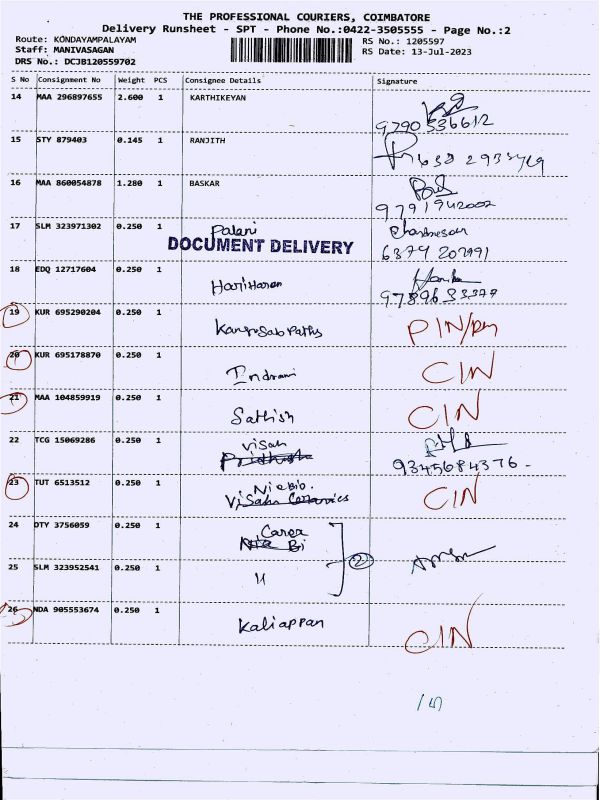 THE PROFESSIONAL COURIERS, COIMBATORE
Delivery Runsheet - SPT - Phone No.:0422-3505555 - Page No.:2
Route: KONDAYAMPALAYAM
Staff: MANIVASAGAN
DRS No.: DCJB120559702
RS No.: 1205597
RS Date: 13-Jul-2023
S No Consignment No Weight PCS Consignee Details Signature
14 MAA 296897655 2.600 1 KARTHIKEYAN
9790536612
15 STY 879403 0.145 1 RANJITH
16 MAA 860054878 1.280 1 BASKAR
9791942002
17 SLM 323971302 0.250 1 Palani
DOCUMENT DELIVERY
18 EDQ 12717604 0.250 1 HariHaran
19 KUR 695290204 0.250 1
20 KUR 695178870 0.250 1 Indrani CIN
21 MAA 104859919 0.250 1 Sathish CIN
22 TCG 15069286 0.250 1 Visah
9345684376 -
23 TUT 6513512 0.250 1 CIN
Visah Ceramics
24 DTY 3756059 0.250 1
2
25 SLM 323952541 0.250 1 11
26 NDA 905553674 0.250 1 Kaliappan CIN